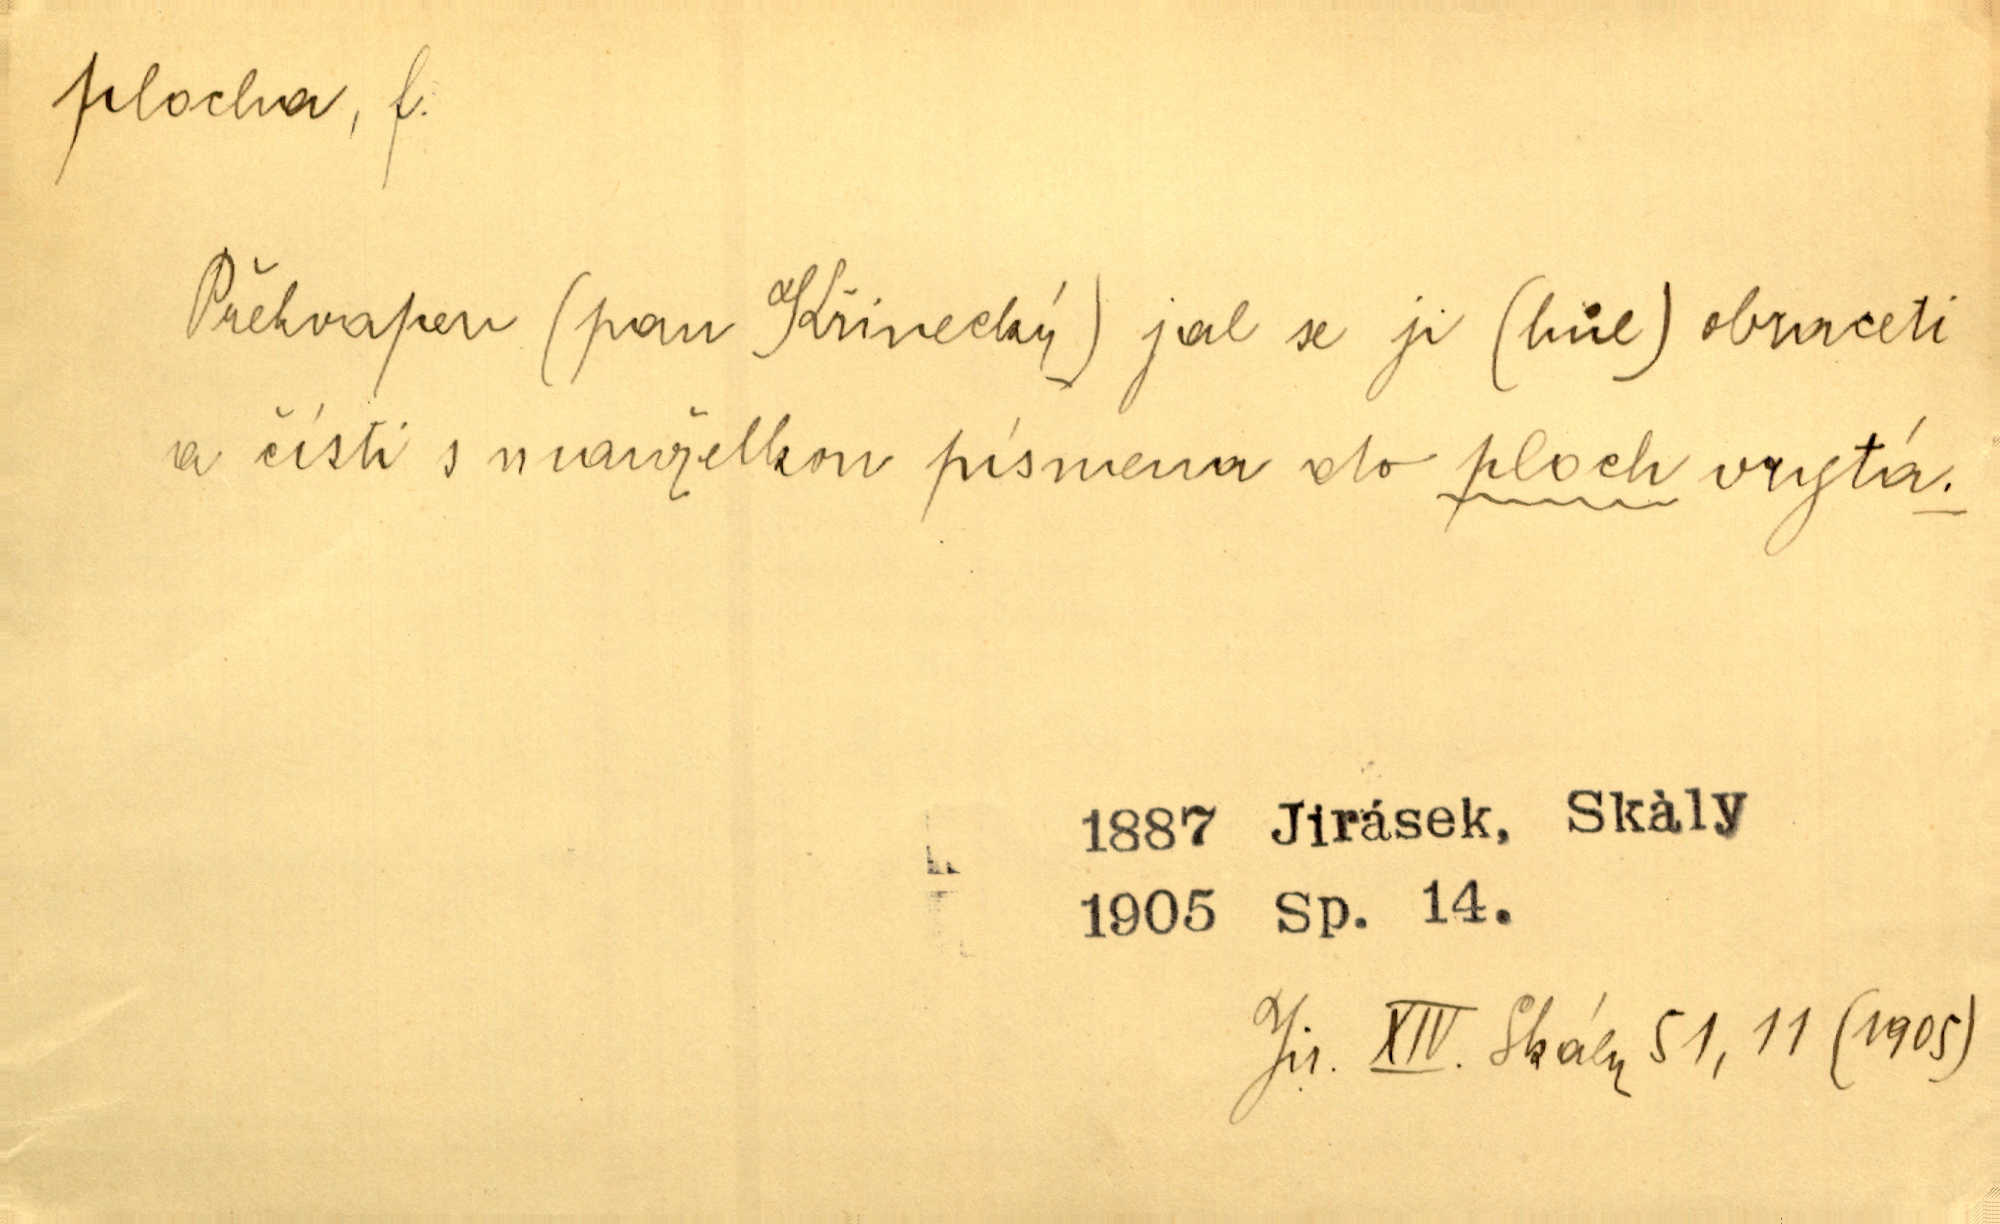 plocha, f.
Překvapen (pan Křinecký) jal se ji (hůl) obraceti
a čísti s manželkou písmena do ploch vrytá.
1887 Jirásek, Skàly
1905 Sp. 14.
Jir. XIV. Skály 51, 11 (1905)